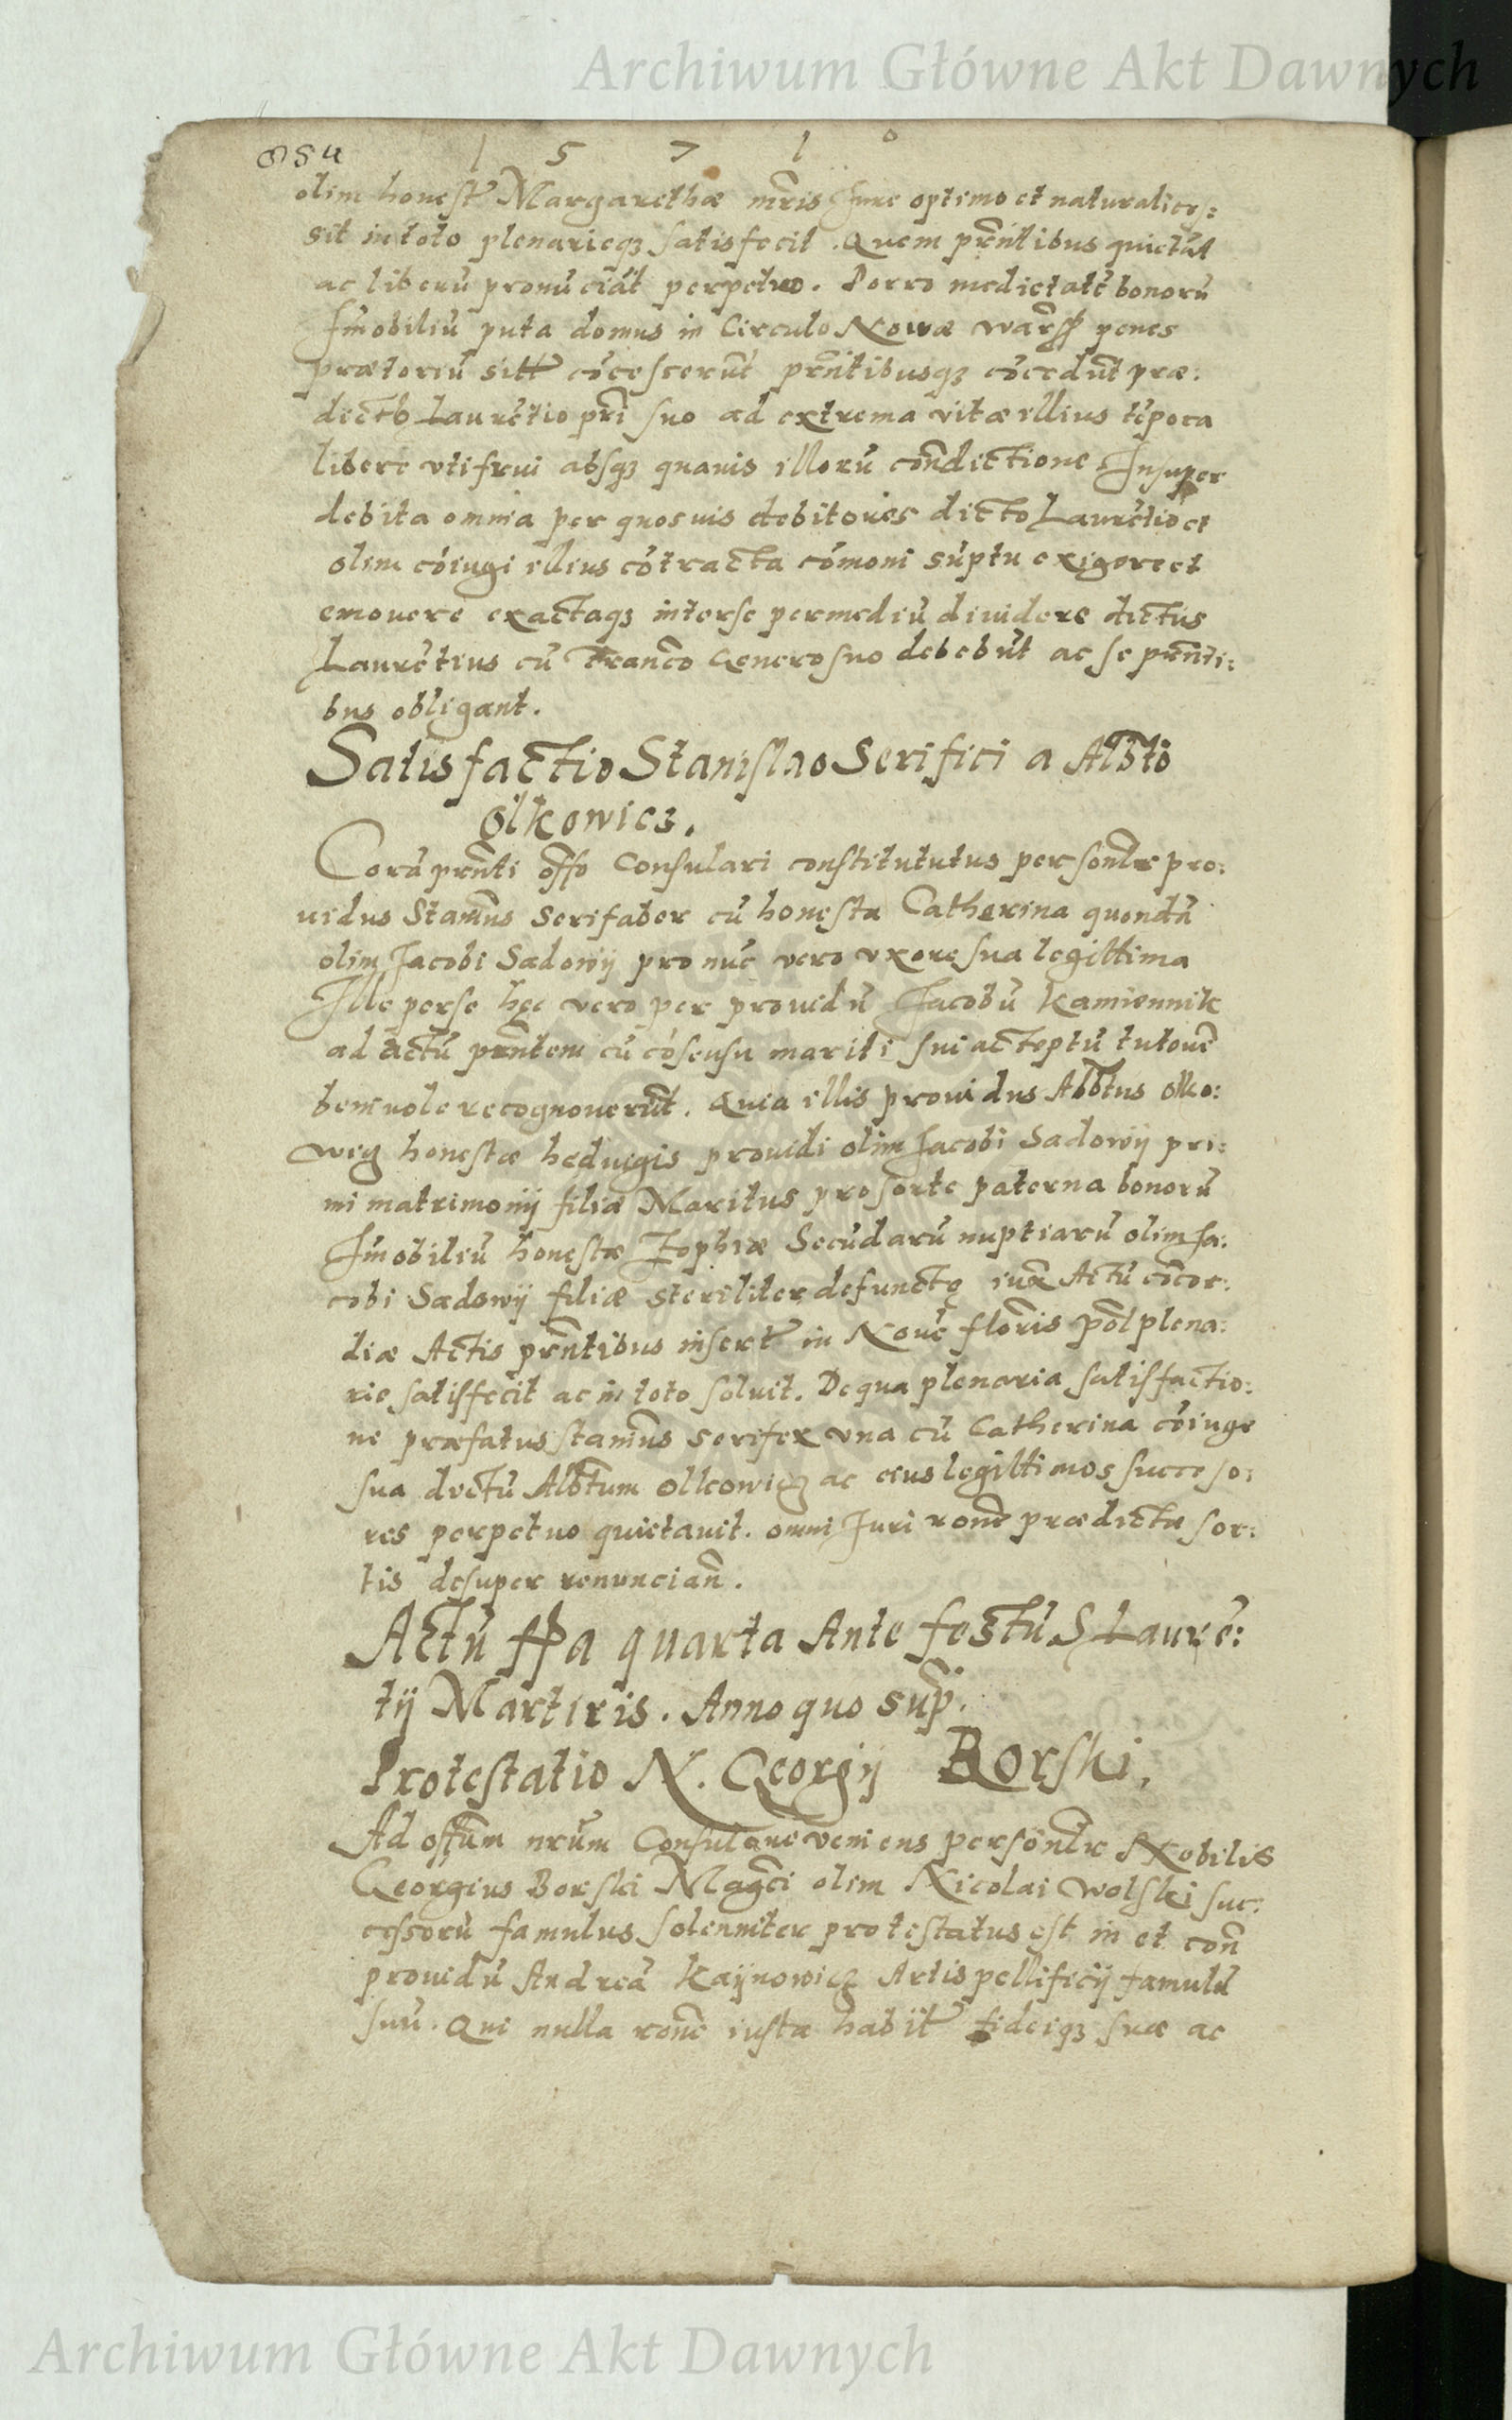 Archiwum Główne Akt Dawnych
1 5 7 1 °
olim honestæ Margarethæ mr̄is Jure optimo et naturali ces:
sit in toto plenarieqꝫ satisfecit. Quem prn̄tibus quietāt
ac liberū pronūciāt perpetuo. Porro medietatē bonorū
Im̄obiliū puta domus in Circulo Nowæ warsch penes
prætoriū sitæ cōcesserūt prn̄tibusqꝫ cōcedūt præ:
dicto Laurētio pr̄i suo ad extrema vitæ illius tēpora
libere vtifrui absqꝫ quauis illorū con̄dictione Insuper
debita omnia per quosuis debitores dicto Laurētio et
olim cōiugi illius cōtracta cōmoni sūptu exigere et
emouere exactaqꝫ inter se permediū diuidere dictus
Laurētius cū Franc̄o Genero suo debebūt ac se prn̄ti:
bus obligant.
Satisfactio Stanislao Serifici a Alb̄to
Olkowicz.
Corā prn̄ti off̄o Consulari constitututus personlr̄ pro:
uidus Stan̄us Serifaber cū honesta Catherina quondā
olim Jacobi Sadowÿ pro nūc vero vxore sua legittima
Ille per se hęc vero per prouidū Jacobū Kamiennik
ad actū prn̄tem cū cōsensu mariti sui acceptū tutorē
beniuole recognouerūt. Quia illis prouidus Alb̄tus Olko:
wicz honestæ heduigis prouidi olim Jacobi Sadowÿ pri:
mi matrimonÿ filiæ Maritus pro sorte paterna bonorū
Im̄obiliū honestæ Zophiæ Secūdarū nuptiarū olim Ja:
cobi Sadowÿ filiæ steriliter defunctę iux̄ Actū cōcor:
diæ Actis prn̄tibus insertæ in Nouē flor̄is pōl plena:
rie satisfecit ac in toto soluit. De qua plenaria satisfactio:
ne præfatus Stan̄us Serifex vna cū Catherina cōiuge
sua dictū Alb̄tum Olkowicz ac eius legittimos succeso:
res perpetuo quietauit. omni Juri ron̄e prædictæ sor:
tis desuper renuncian̄.
Actū ffa quarta Ante festū S Laurē:
tÿ Martiris. Anno quo sup̄.
Protestatio N. Georgÿ Borski.
Ad off̄um nr̄um Consulare veniens personlr̄ Nobilis
Georgius Borski Magc̄i olim Nicolai Wolski suc:
cessorū famulus solenniter protestatus est in et con̄
prouidū Andreā Kaÿnowicz Artis pellificÿ famulū
suū. Qui nulla ron̄e iusta habita fideiqꝫ suæ ac
Archiwum Główne Akt Dawnych